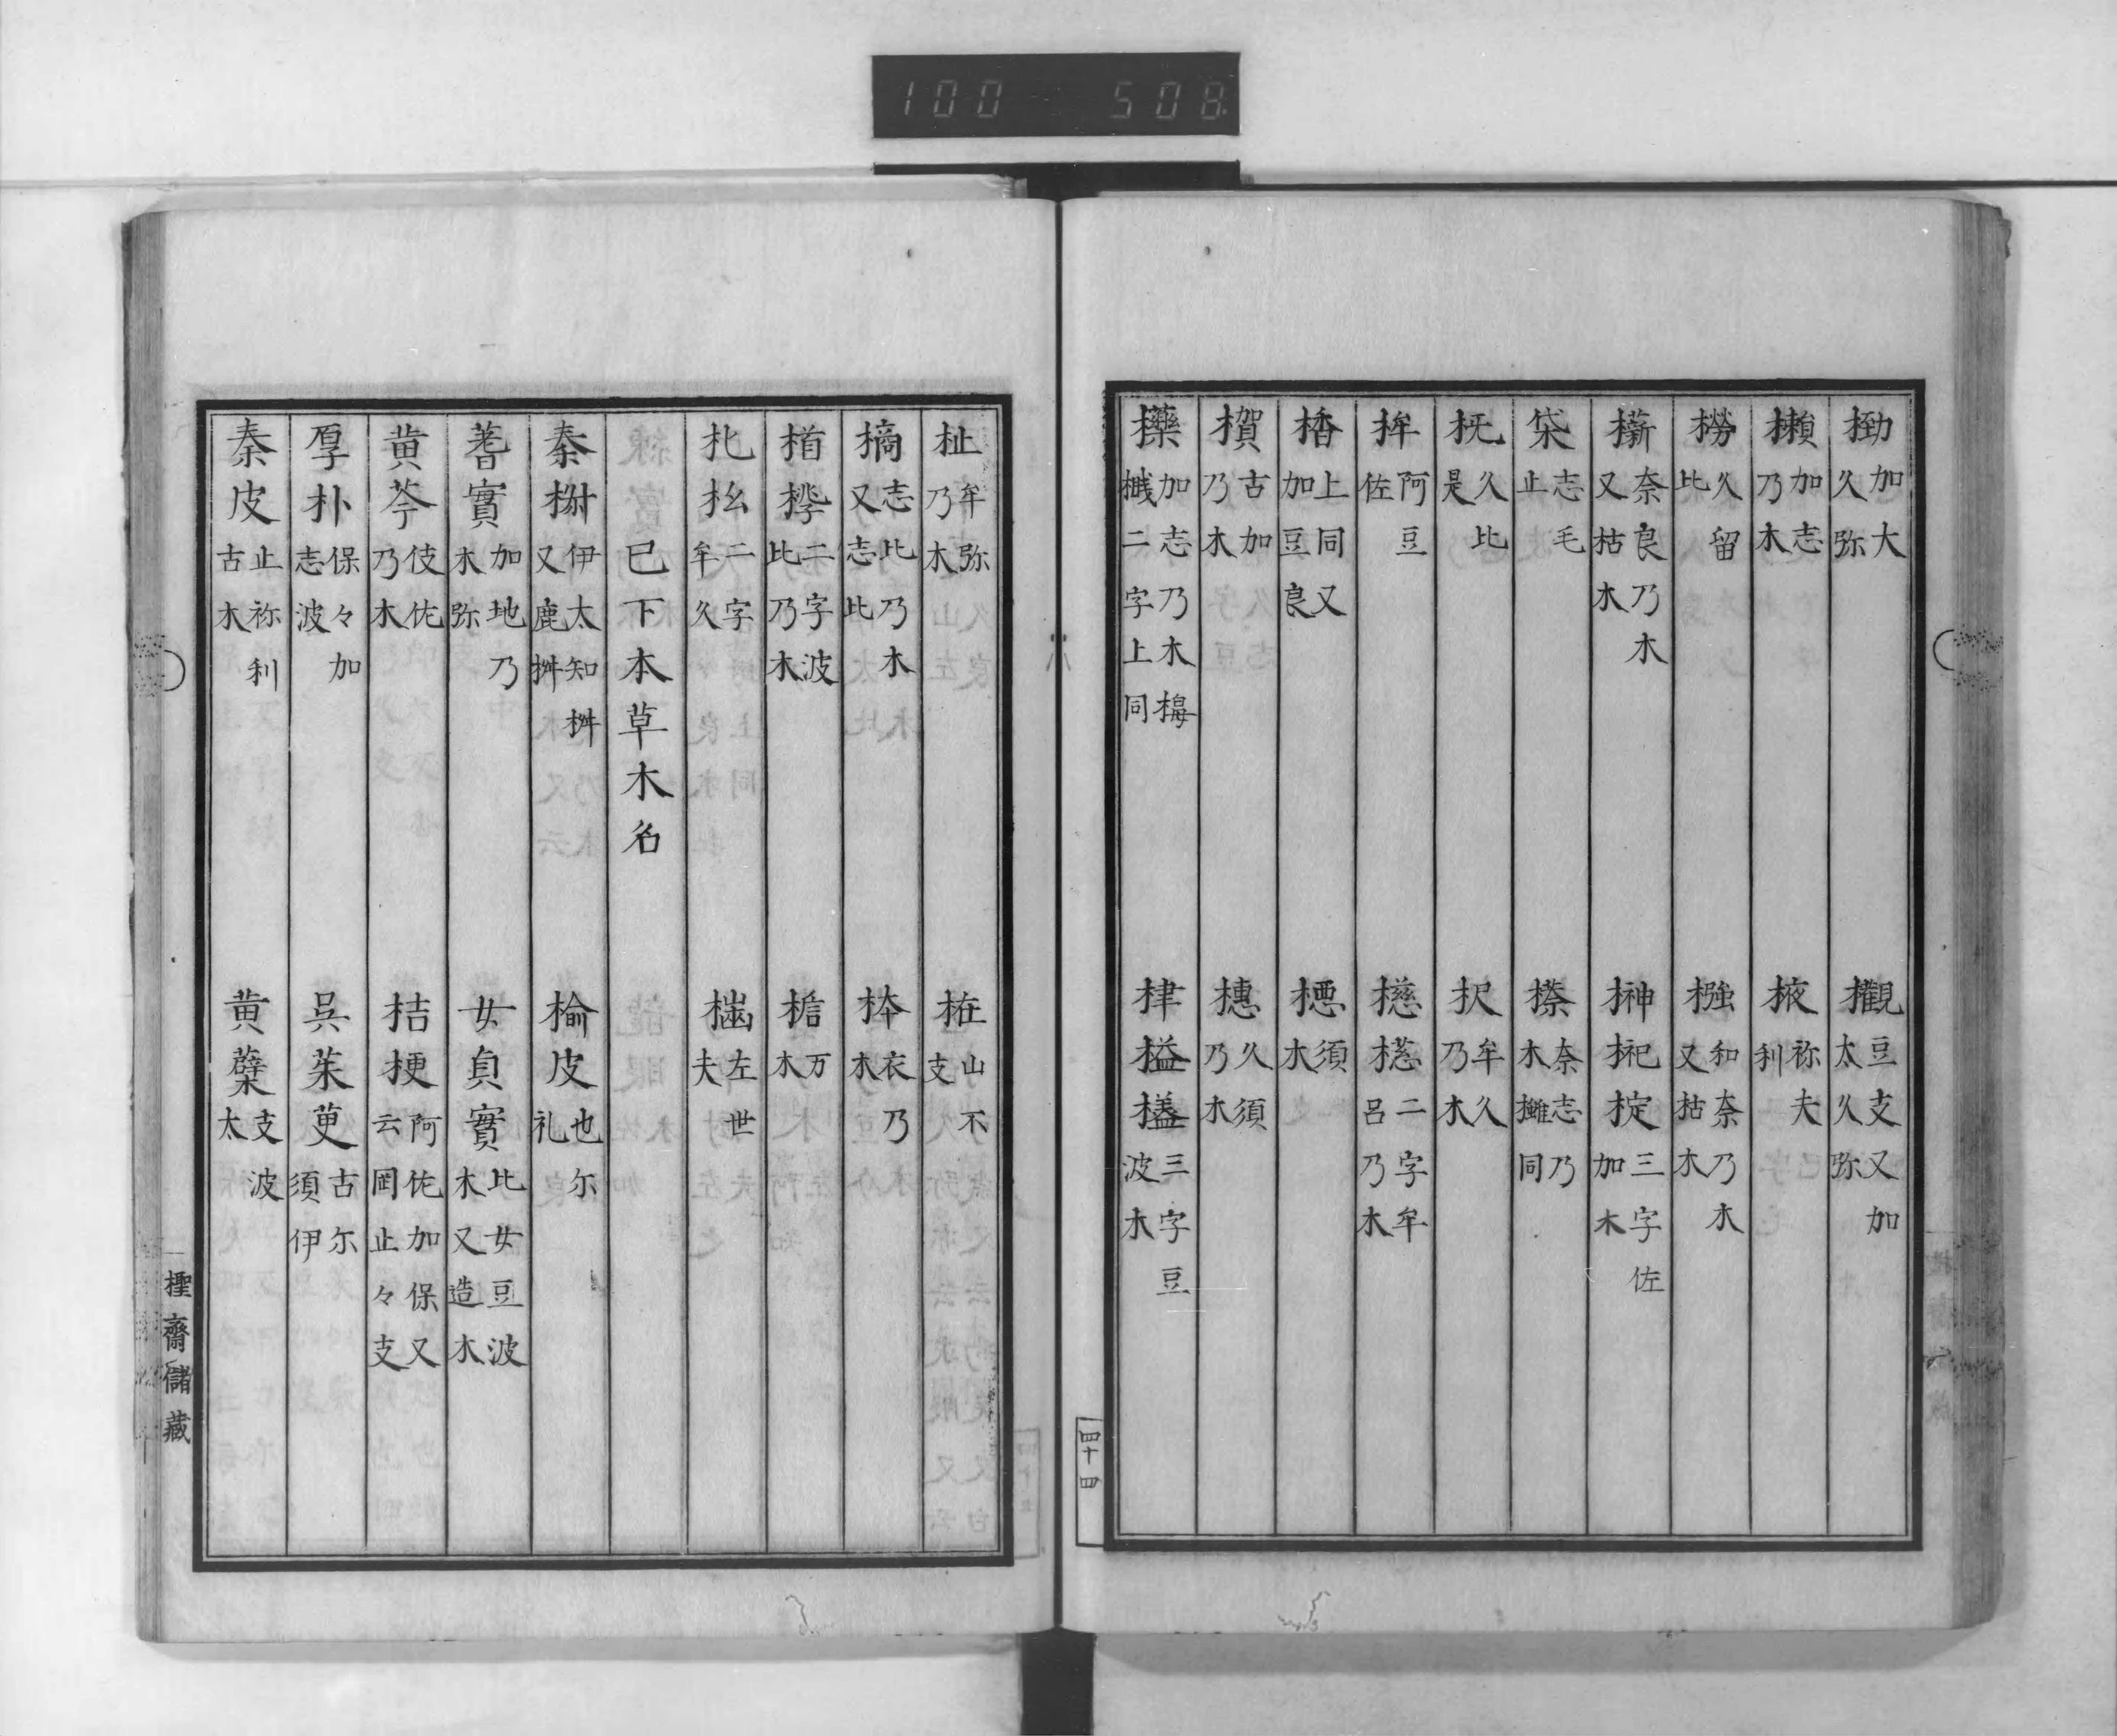 100 508
𣒚加大久弥 欟豆支又加太久弥
𣟧加志乃木 棭祢夫利
橯久留比 𣛦和奈乃木又枯木
𣟖奈良乃木又枯木 榊杞椗三字佐加木
枤志毛止 㯕奈志乃木㰚同
𣏕久比久比是 杘牟久乃木
桙阿豆佐 檧𣙀二字牟呂乃木
㮌上同又加豆良 𣘺須木
𣝅古加乃木 橞久須乃木
欌加志乃木梅櫗二字上同 㭿榏𣞀三字豆波木
四十四
杫牟弥乃木 栣山不支
樀志比乃木又志比 㭐衣乃木
楯𣓤二字波比乃木 檐万木
札㭃二字牟久 𣙇左世夫
已下本草木名
秦椒伊太知椒又鹿椒 榆皮也尔礼
蓍實加地乃木弥 女貞實比女豆波木又造木
黄芩伎佐乃木 桔梗阿佐加保又云罡止々支
厚朴保々加志波 呉茱萸古尔須伊
秦皮止祢利古木 黄蘗支波太
檉齋儲藏